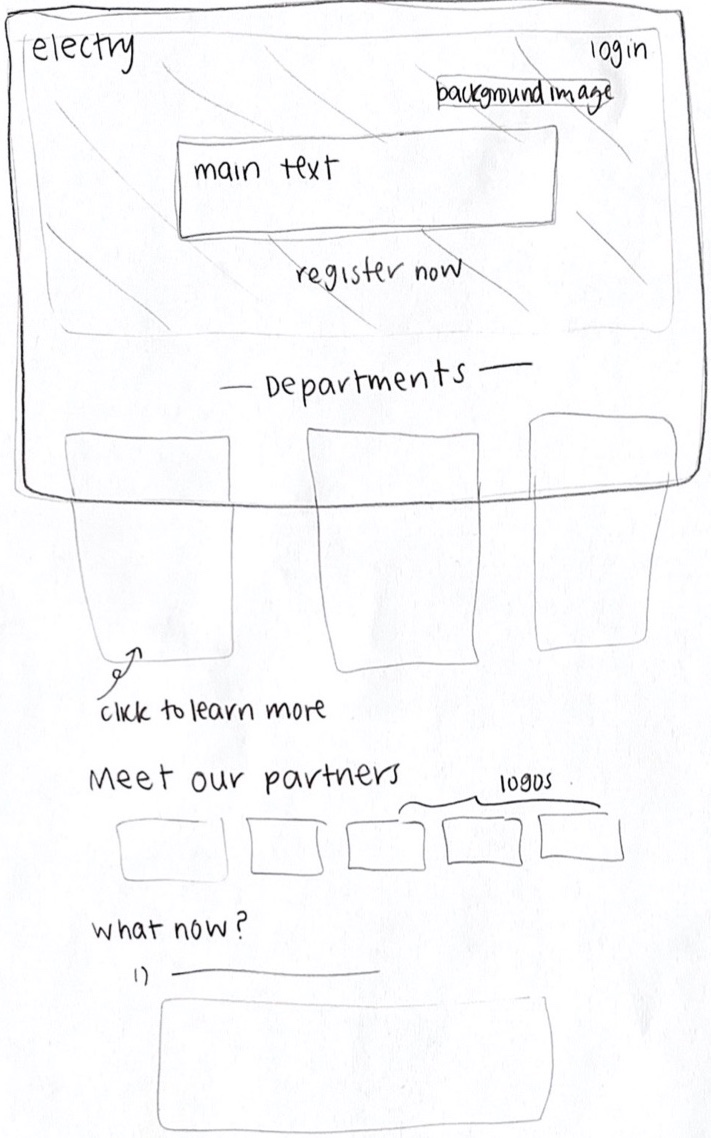 electry
login
background image
main text
register now
— Departments —
click to learn more
Meet our partners
logos
what now?
1)